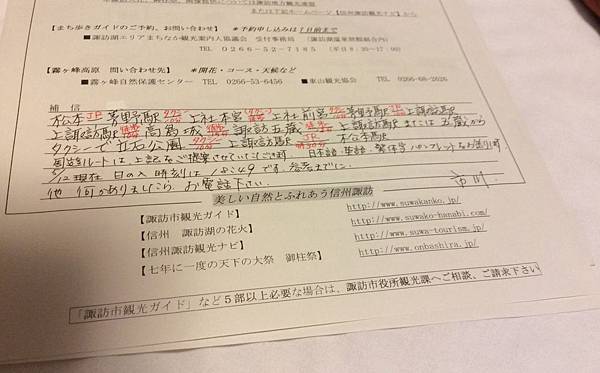 または下記ホームページ【信州諏訪観光ナビ】から
【まち歩きガイドのご予約、お問い合わせ】 *予約申し込みは7日前まで
■諏訪湖エリアまちなか観光案内人協議会 受付事務局
TEL 0266-52-7185 (平日8:30~17:00)
【霧ヶ峰高原 問い合わせ先】 *開花・コース・天候など
■霧ヶ峰自然保護センター TEL 0266-53-6456 ■東山観光協会 TEL 0266-68-2626
補 信
松本 JR 茅野駅 タクシー 上社本宮 タクシー 上社前宮 茅野駅 JR 上諏訪駅
上諏訪駅 高島城 諏訪五蔵 上諏訪駅 または 五蔵から
タクシーで 立石公園 上諏訪駅 JR 松本駅
周遊ルートは上記をご提案させていただきます 日本語・英語・繁体字 パンフレットをお送りします
5/12現在 日の入 時刻は です 参考までに。
他 何かありましたら お電話下さい 市川
美しい自然とふれあう信州諏訪
【諏訪市観光ガイド】 http://www.suwakanko.jp/
【信州 諏訪湖の花火】 http://www.suwako-hanabi.com/
【信州諏訪観光ナビ】 http://www.suwa-tourism.jp/
【七年に一度の天下の大祭 御柱祭】 http://www.onbashira.jp/
「諏訪市観光ガイド」など5部以上必要な場合は、諏訪市役所観光課へご相談、ご請求下さい